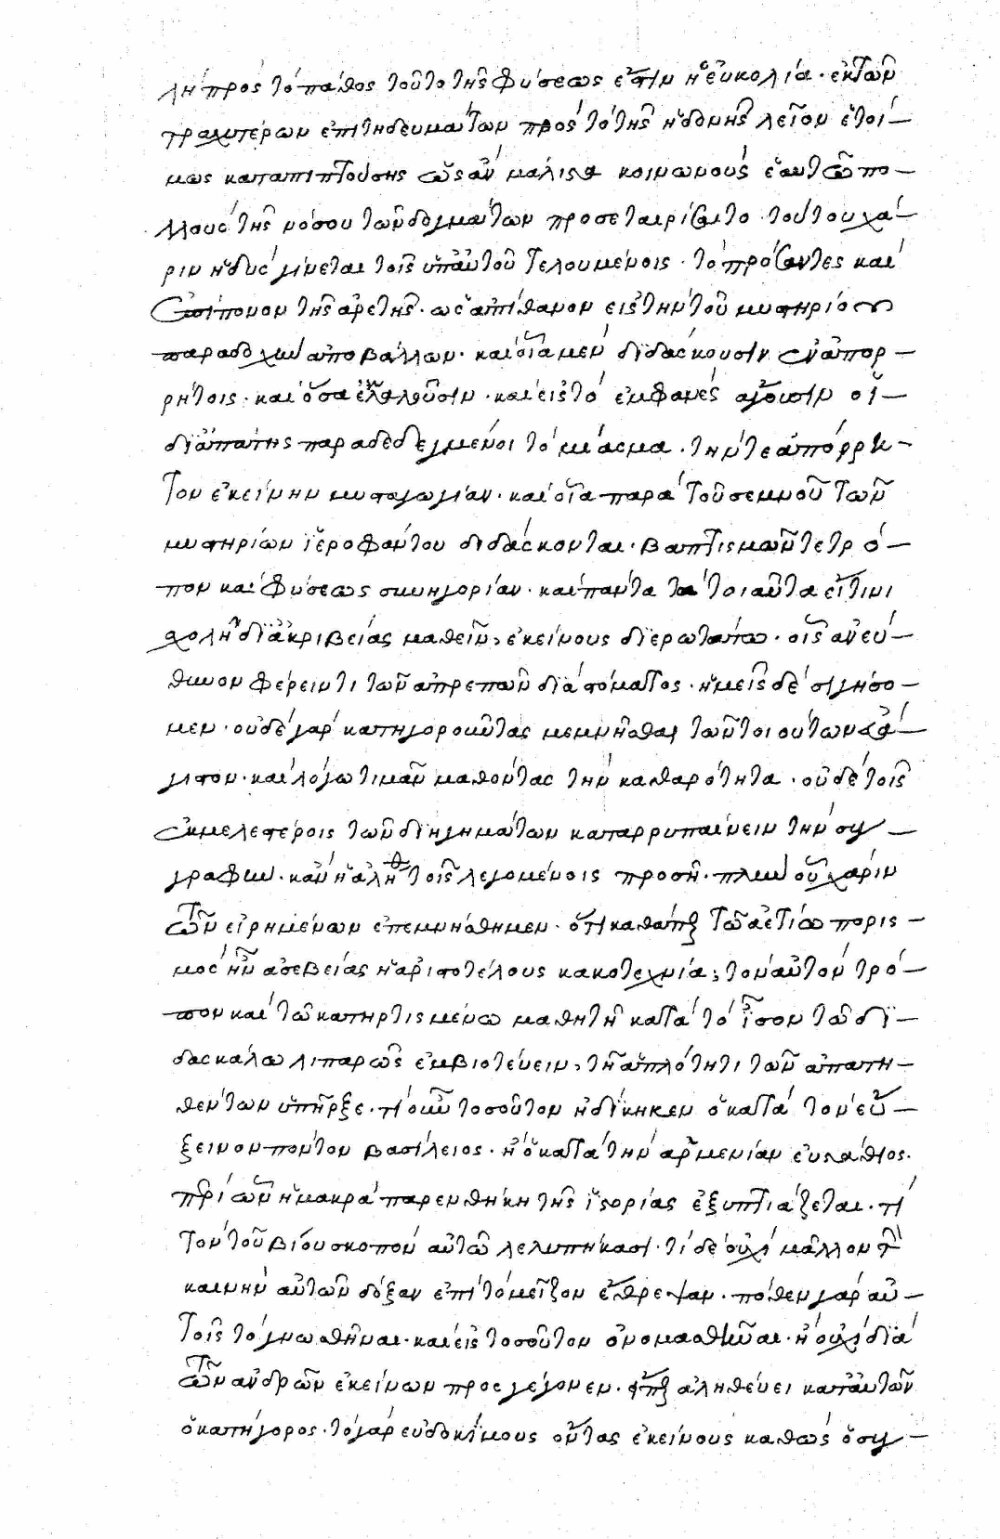 λὴ πρὸς τὸ πάθος τοῦτο τῆς φύσεως ἐστὶν ἡ εὐκολία· ἐκ τῶν
τραχυτέρων ἐπιτηδευμάτων πρὸς τὸ τῆς ἡδονῆς λεῖον ἑτοί-
μως καταπιπτούσης ὡς ἂν μάλιστα κοινωνοὺς ἑαυτῶ πο-
λλοὺς τῆς νόσου τῶν δογμάτων προσεταιρίζοιτο· τούτου χά-
ριν ἡδὺς γίνεται τοῖς ὑπ' αὐτοῦ τελουμένοις· τὸ πρόσαντες καὶ
ἐπίπονον τῆς ἀρετῆς· ὡς ἀπίθανον εἰς τὴν τοῦ μυστηρίου
παραδοχὴν ἀποβάλλων· καὶ οἷα μὲν διδάσκουσιν ἐν ἀπορ-
ρήτοις· καὶ ὅσα ἐκλαλοῦσιν· καὶ εἰς τὸ ἐμφανὲς ἄγουσιν οἱ
δι' ἀπάτης παραδεδεγμένοι τὸ μίασμα· τήν τε ἀπόρρη-
τον ἐκείνην μυσταγωγίαν· καὶ οἷα παρὰ τοῦ σεμνοῦ τῶν
μυστηρίων ἱεροφάντου διδάσκονται· βαπτισμῶν τε τρό-
πον καὶ φύσεως συνηγορίαν· καὶ πάντα τὰ τοιαῦτα εἴ τινι
σχολὴ δι' ἀκριβείας μαθεῖν, ἐκείνους διερωτάτω· οἷς ἀνεύ-
θυνον φέρειν τι τῶν ἀπρεπῶν διὰ στόματος· ἡμεῖς δὲ σιγήσο-
μεν· οὐδὲ γὰρ κατηγοροῦντας μεμνῆσθαι τῶν τοιούτων εὐα-
γιστον· καὶ λόγω τιμᾶν μαθόντας τὴν καθαρότητα· οὐδὲ τοῖς
ἐκμελεστέροις τῶν διηγημάτων καταρρυπαίνειν τὴν συγ-
γραφὴν· κἂν ἡ ἀλήθ τοῖς λεγομένοις προσῆ· πλὴν οὗ χάριν
τῶν εἰρημένων ἐπεμνήσθημεν· ὅτι καθάπερ τῶ ἀετίω πορισ-
μὸς ἦν ἀσεβείας ἡ ἀριστοτέλους κακοτεχνία; τὸν αὐτὸν τρό-
πον καὶ τῶ κατηρτισμένω μαθητῆ κατὰ τὸ ἴσον τῶ δι-
δασκάλω λιπαρῶς ἐμβιοτεύειν, τῆ ἁπλότητι τῶν ἀπατη-
θέντων ὑπῆρξε· τί οὖν τοσοῦτον ἠδίκηκεν ὁ κατὰ τὸν εὔ-
ξεινον πόντον βασίλειος· ἢ ὁ κατὰ τὴν ἀρμενίαν εὐστάθιος·
περὶ ὧν ἡ μακρὰ παρενθήκη τῆς ἱστορίας ἐξυπτιάζεται· τί
τὸν τοῦ βίου σκοπὸν αὐτῶ λελυπήκασι· τί δὲ οὐχὶ μᾶλλον τὴν
καινὴν αὐτῶν δόξαν ἐπὶ τὸ μεῖζον ἔθρεψαν· πόθεν γὰρ αὐ-
τοῖς τὸ γνωσθῆναι· καὶ εἰς τοσοῦτον ὀνομασθῆναι· ἢ οὐχὶ διὰ
τῶν ἀνδρῶν ἐκείνων προσγέγονεν· εἴπερ ἀληθεύει κατ' αὐτῶν
ὁ κατήγορος· τὸ γὰρ εὐδοκίμους ὄντας ἐκείνους καθὼς ὁ συγ-